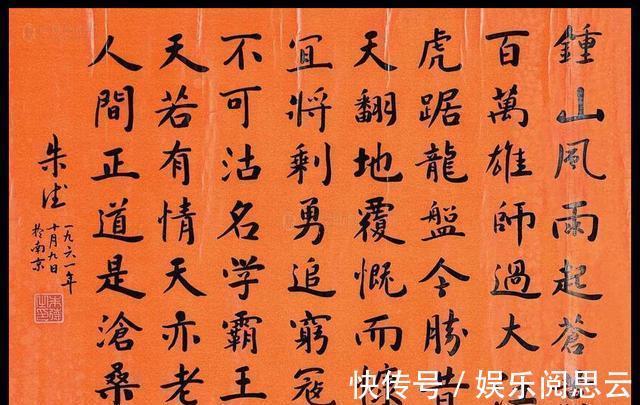 鍾山風雨起蒼
百萬雄師過大
虎踞龍盤今勝昔
天翻地覆慨而
宜將剩勇追窮寇
不可沽名学霸王
天若有情天亦老
人間正道是滄桑
朱德
一九六一年
十月九日
於南京
快传号／娱乐阅思云